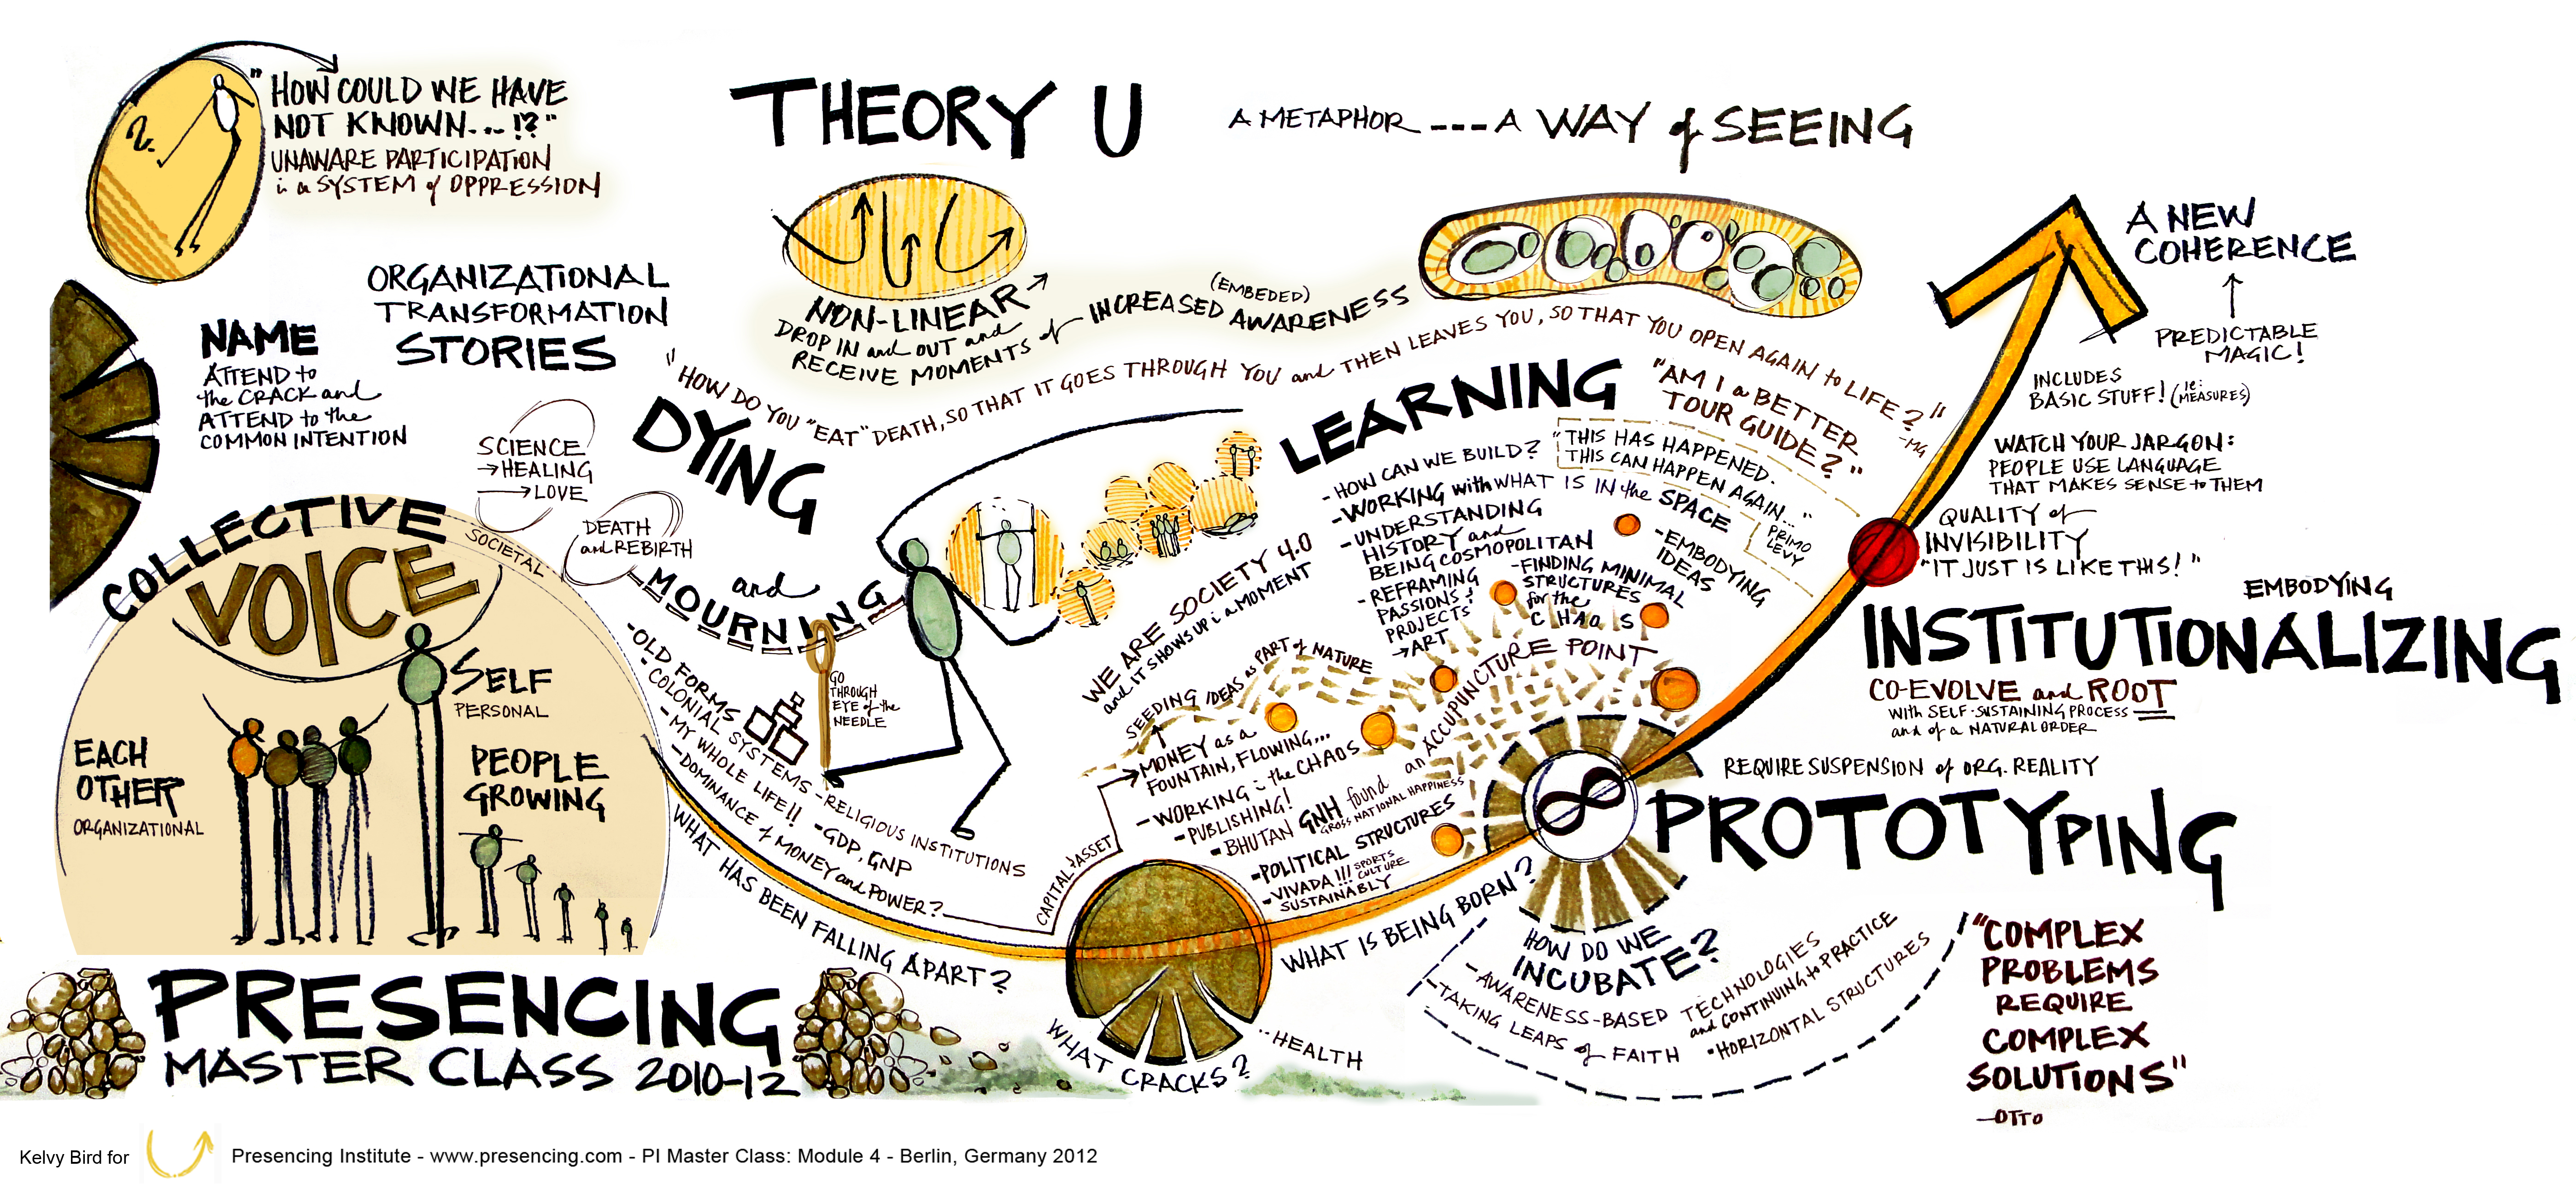 "HOW COULD WE HAVE
NOT KNOWN... !?"
UNAWARE PARTICIPATION
in a SYSTEM of OPPRESSION
THEORY U
A METAPHOR --- A WAY of SEEING
NON-LINEAR
DROP IN and OUT and
RECEIVE MOMENTS of INCREASED (EMBEDED) AWARENESS
ORGANIZATIONAL
TRANSFORMATION
STORIES
NAME
ATTEND to
the CRACK and
ATTEND to the
COMMON INTENTION
SCIENCE
→HEALING
→LOVE
DEATH
and REBIRTH
"HOW DO YOU "EAT" DEATH, SO THAT IT GOES THROUGH YOU and THEN LEAVES YOU, SO THAT YOU OPEN AGAIN to LIFE?"
-MG
DYING
and
MOURNING
GO
THROUGH
EYE of the
NEEDLE
-OLD FORMS
-COLONIAL SYSTEMS
-MY WHOLE LIFE!!
-RELIGIOUS INSTITUTIONS
-DOMINANCE of MONEY and POWER?
-GDP, GNP
WHAT HAS BEEN FALLING APART?
COLLECTIVE
VOICE
SOCIETAL
SELF
PERSONAL
EACH
OTHER
ORGANIZATIONAL
PEOPLE
GROWING
PRESENCING
MASTER CLASS 2010-12
WE ARE SOCIETY 4.0
and IT SHOWS UP in a MOMENT
SEEDING IDEAS as PART of NATURE
CAPITAL → ASSET
MONEY as a
FOUNTAIN, FLOWING...
-WORKING in the CHAOS
-PUBLISHING!
-BHUTAN GNH found an ACCUPUNCTURE POINT
GROSS NATIONAL HAPPINESS
-POLITICAL STRUCTURES
-VIVADA!!! SPORTS
CULTURE
SUSTAINABLY
WHAT CRACKS?
..HEALTH
WHAT IS BEING BORN?
LEARNING
-HOW CAN WE BUILD?
-WORKING with WHAT IS IN the SPACE
-UNDERSTANDING
HISTORY and
BEING COSMOPOLITAN
-REFRAMING
PASSIONS &
PROJECTS
→ART
-FINDING MINIMAL
STRUCTURES
for the
CHAOS
-EMBODYING
IDEAS
"THIS HAS HAPPENED.
THIS CAN HAPPEN AGAIN..."
PRIMO
LEVY
"AM I a BETTER
TOUR GUIDE?"
A NEW
COHERENCE
PREDICTABLE
MAGIC!
INCLUDES
BASIC STUFF! (ie: MEASURES)
WATCH YOUR JARGON:
PEOPLE USE LANGUAGE
THAT MAKES SENSE to THEM
QUALITY of
INVISIBILITY
"IT JUST IS LIKE THIS!"
EMBODYING
INSTITUTIONALIZING
CO-EVOLVE and ROOT
WITH SELF-SUSTAINING PROCESS
and of a NATURAL ORDER
REQUIRE SUSPENSION of ORG. REALITY
PROTOTYPING
HOW DO WE
INCUBATE?
-AWARENESS-BASED TECHNOLOGIES
and CONTINUING to PRACTICE
-TAKING LEAPS of FAITH
•HORIZONTAL STRUCTURES
"COMPLEX
PROBLEMS
REQUIRE
COMPLEX
SOLUTIONS"
-OTTO
Kelvy Bird for Presencing Institute - www.presencing.com - PI Master Class: Module 4 - Berlin, Germany 2012